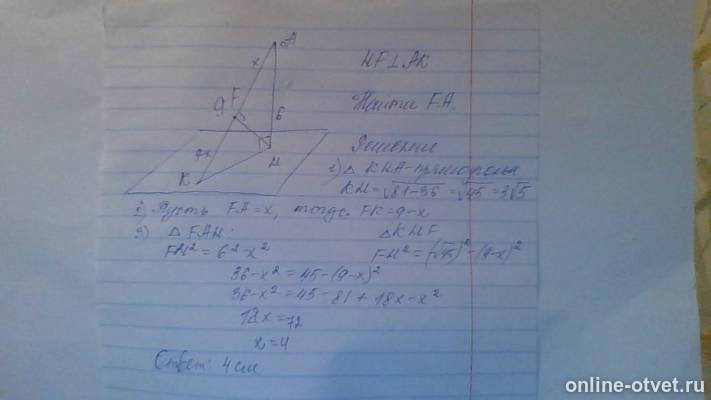 A
x
HF⊥AK
9
F
6
Найти FA.
Решение
9-x
H
K
1) △ KHA-прямоуголь
KH=√81-36 =√45 =3√5
2) Пусть FA=x, тогда FK=9-x
3) △ FAH
△KHF
FH²= 6²-x²
FH²=(√45)²-(9-x)²
36-x²=45-(9-x)²
36-x²=45-81+18x-x²
18x=72
x=4
Ответ: 4 см
online-otvet.ru